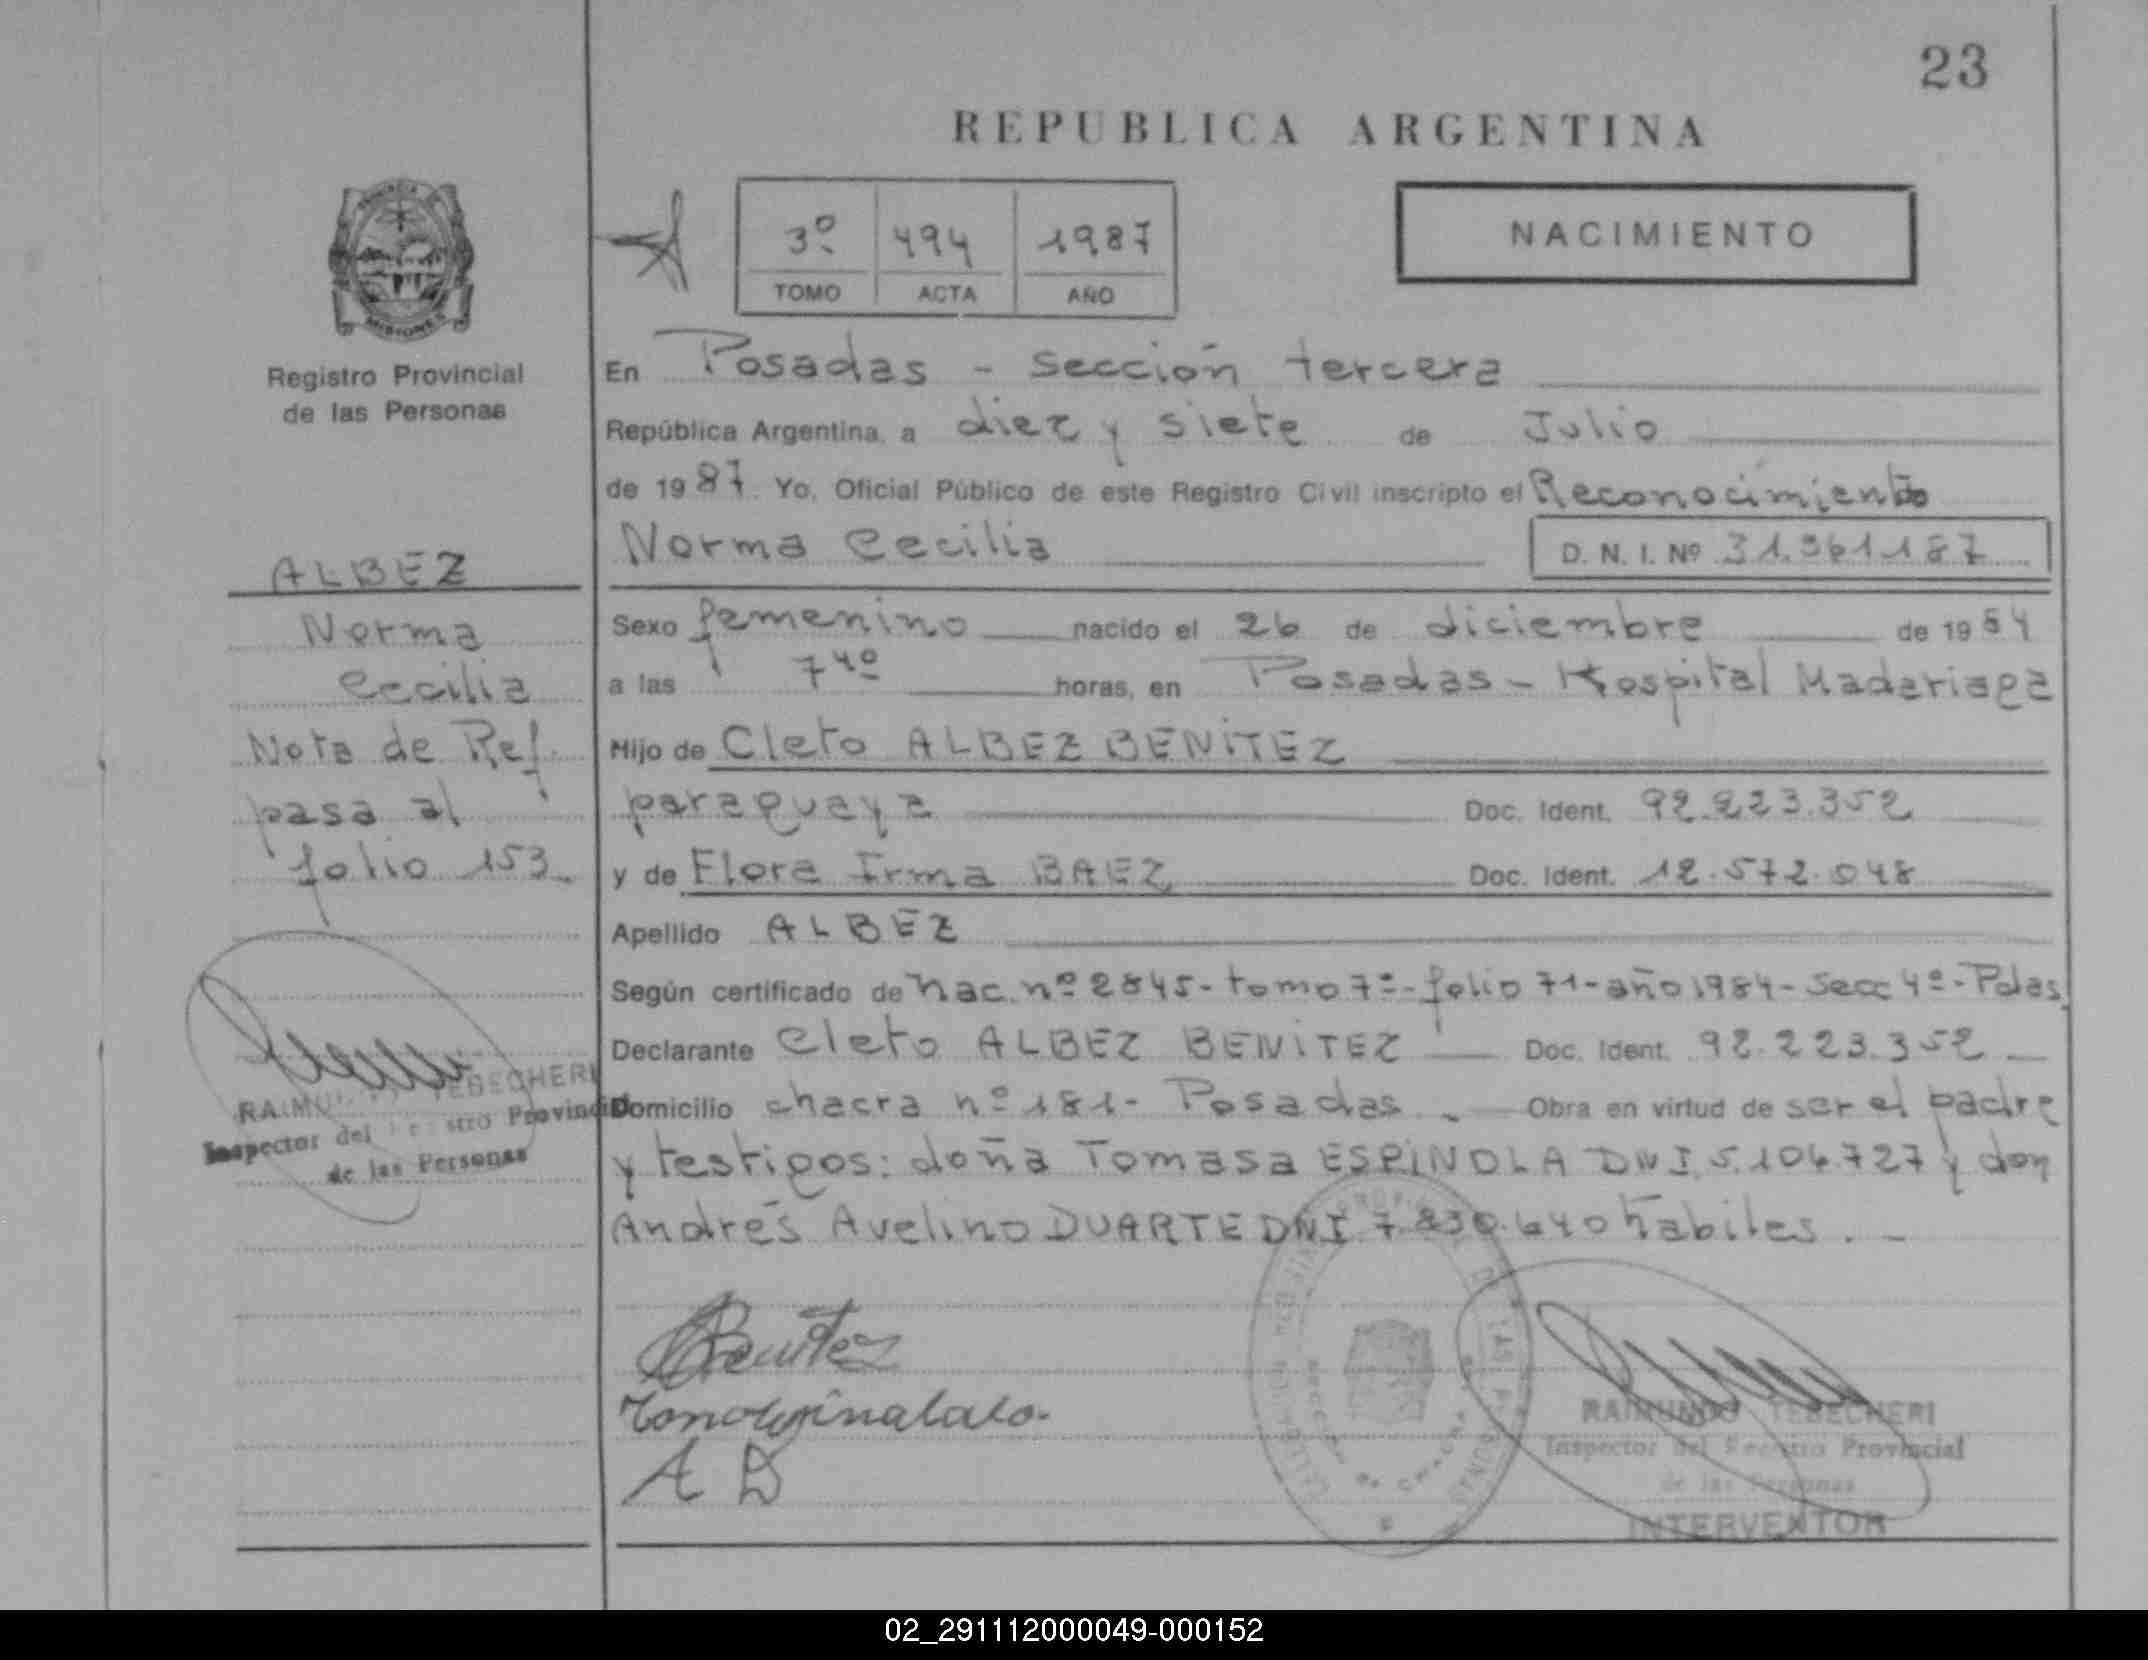 23
REPUBLICA ARGENTINA
PROVINCIA
MISIONES
Registro Provincial
de las Personas
3º 494 1987
TOMO ACTA AÑO
NACIMIENTO
En Posadas - Sección tercera
República Argentina, a diez y siete de Julio
de 1987. Yo, Oficial Público de este Registro Civil inscripto el Reconocimiento
Norma Cecilia D. N. I. Nº 31.361.187
Sexo femenino nacido el 26 de diciembre de 1984
a las 7 40 horas, en Posadas - Hospital Madariaga
Hijo de Cleto ALBEZ BENITEZ
paraguaya Doc. Ident. 92.223.352
y de Flora Irma BAEZ Doc. Ident. 12.572.048
Apellido ALBEZ
Según certificado de nac. nº 2845 - tomo 7º - folio 71 - año 1984 - Secc 4º - Pdas
Declarante Cleto ALBEZ BENITEZ Doc. Ident. 92.223.352
Domicilio chacra nº 181 - Posadas. Obra en virtud de ser el padre
y testigos: doña Tomasa ESPINDOLA DNI 5.104.727 y don
Andrés Avelino DUARTE DNI 7.830.640 hábiles.
ALBEZ
Norma
Cecilia
Nota de Ref.
pasa al
folio 153.
RAIMUNDO TEBECHERI
Inspector del Registro Provincial
de las Personas
Benitez
A D
RAIMUNDO TEBECHERI
Inspector del Registro Provincial
de las Personas
INTERVENTOR
02_291112000049-000152